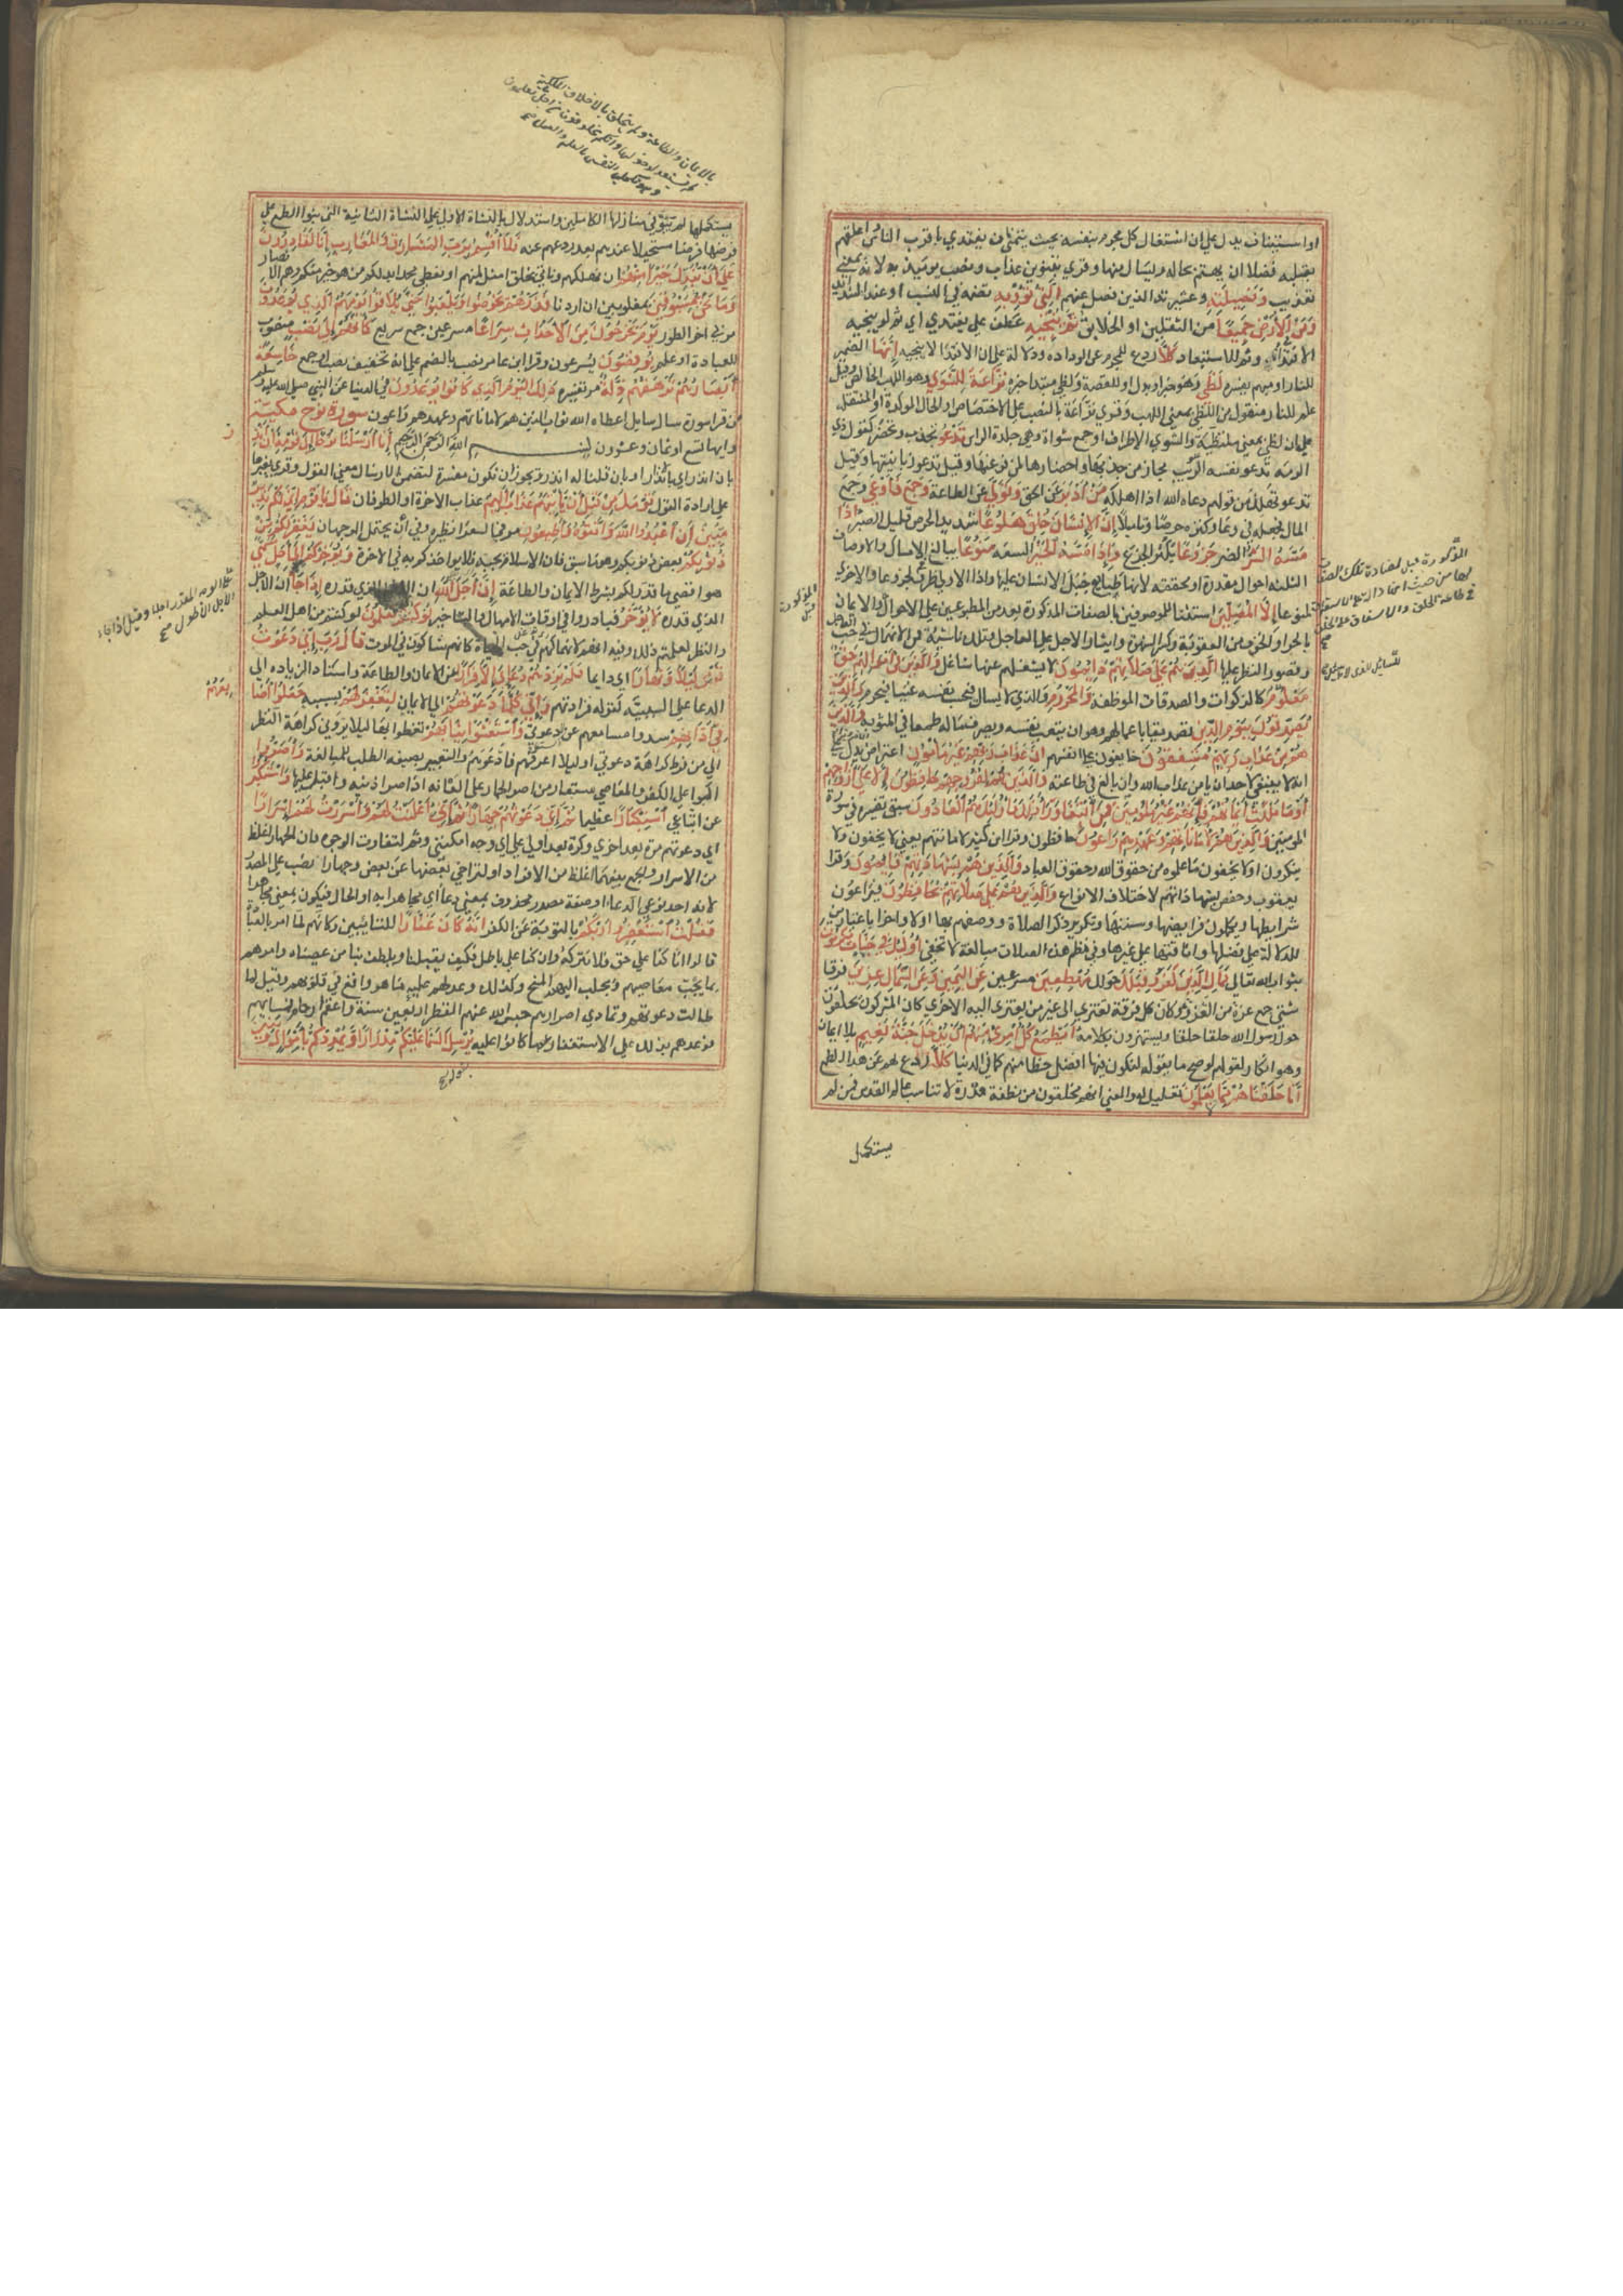 او استيناف يدل على ان اشتغال كل مجرم بنفسه بحيث يتمنى ان يفتدي باقرب الناس واعلقهم
بقلبه فضلا ان يهتم بحاله ويسال عنها وقري بتنوين عذاب ونصب يومئذ به لانه بمعنى
تعذيب وَفَصِيلَتِهِ وعشيرته الذين فصل عنهم الَّتِي تُؤْوِيهِ تضمه في النسب او عند الشدايد
وَمَنْ فِي الْأَرْضِ جَمِيعًا من الثقلين او الخلايق ثُمَّ يُنْجِيهِ عطف على يفتدي اي ثم لو ينجيه
الافتدا وثم للاستبعاد كَلَّا ردع للمجرم عن الودادة ودلالة على ان الافتدا لا ينجيه إِنَّهَا الضمير
للنار او مبهم يفسره لَظَى وهو خبر او بدل او للقصة ولظى مبتدا خبره نَزَّاعَةً لِلشَّوَى وهو اللهب الخالص وقيل
علم للنار منقول من اللظى بمعنى اللهب وقري نزاعة بالنصب على الاختصاص او الحال الموكدة او المنتقلة
على ان لظى بمعنى متلظية والشوى الاطراف او جمع شواة وهي جلدة الراس تَدْعُو تجذب وتحضر كقول ذي
الرمة تدعو انفه الريب مجاز من جذبها واحضارها لمن فر عنها وقيل تدعو زبانيتها وقيل
تدعو تهلك من قولهم دعاه الله اذا اهلكه مَنْ أَدْبَرَ عن الحق وَتَوَلَّى عن الطاعة وَجَمَعَ فَأَوْعَى وجمع
المال فجعله في وعاء وكنزه حرصا وتاميلا إِنَّ الْإِنْسَانَ خُلِقَ هَلُوعًا شديد الحرص قليل الصبر إِذَا
مَسَّهُ الشَّرُّ الضر جَزُوعًا يكثر الجزع وَإِذَا مَسَّهُ الْخَيْرُ السعة مَنُوعًا يبالغ في الامساك والاوصاف
الثلثة احوال مقدرة او محققة لانها طبايع جبل الانسان عليها واذا الاولى ظرف لجزوعا والاخرى
لمنوعا إِلَّا الْمُصَلِّينَ استثنا للموصوفين بالصفات المذكورة بعد من المطبوعين على الاحوال
بالجزا والخوف من العقوبة وكسر الشهوة وايثار الاجل على العاجل وتلك ناشية من الانهماك في حب العاجل
وقصور النظر عليها الَّذِينَ هُمْ عَلَى صَلَاتِهِمْ دَائِمُونَ لا يشغلهم عنها شاغل وَالَّذِينَ فِي أَمْوَالِهِمْ حَقٌّ
مَعْلُومٌ كالزكوات والصدقات الموظفة وَالْمَحْرُومِ والذي لا يسال فيحسب نفسه غنيا فيحرم وَالَّذِينَ
يُصَدِّقُونَ بِيَوْمِ الدِّينِ تصديقا باعمالهم وهو ان يتعب نفسه ويصرف ماله طمعا في المثوبة وَالَّذِينَ
هُمْ مِنْ عَذَابِ رَبِّهِمْ مُشْفِقُونَ خايفون على انفسهم إِنَّ عَذَابَ رَبِّهِمْ غَيْرُ مَأْمُونٍ اعتراض يدل على
انه لا ينبغي لاحد ان يامن عذاب الله وان بالغ في طاعته وَالَّذِينَ هُمْ لِفُرُوجِهِمْ حَافِظُونَ إِلَّا عَلَى أَزْوَاجِهِمْ
أَوْ مَا مَلَكَتْ أَيْمَانُهُمْ فَإِنَّهُمْ غَيْرُ مَلُومِينَ فَمَنِ ابْتَغَى وَرَاءَ ذَلِكَ فَأُولَئِكَ هُمُ الْعَادُونَ سبق تفسيره في سورة
المومنين وَالَّذِينَ هُمْ لِأَمَانَاتِهِمْ وَعَهْدِهِمْ رَاعُونَ حافظون وقرا ابن كثير لامانتهم يعني لا يخفون ولا
ينكرون او لا يخفون ما علموه من حقوق الله وحقوق العباد وَالَّذِينَ هُمْ بِشَهَادَتِهِمْ قَائِمُونَ وقرا
يعقوب وحفص بشهاداتهم لاختلاف الانواع وَالَّذِينَ هُمْ عَلَى صَلَاتِهِمْ يُحَافِظُونَ فيراعون
شرايطها ويكملون فرايضها وسننها وتكرير ذكر الصلاة ووصفهم بها اولا واخرا باعتبارين
للدلالة على فضلها وانافتها على غيرها وفي نظم هذه الصلات مبالغة لا تخفى أُولَئِكَ فِي جَنَّاتٍ مُكْرَمُونَ
بثواب الله تعالى فَمَالِ الَّذِينَ كَفَرُوا قِبَلَكَ حولك مُهْطِعِينَ مسرعين عَنِ الْيَمِينِ وَعَنِ الشِّمَالِ عِزِينَ فرقا
شتى جمع عزة من العزو وكان كل فرقة تعتزي الى غير من يعتزي اليه الاخرى كان المشركون يحلقون
حول رسول الله حلقا حلقا ويستهزون بكلامه أَيَطْمَعُ كُلُّ امْرِئٍ مِنْهُمْ أَنْ يُدْخَلَ جَنَّةَ نَعِيمٍ بلا ايمان
وهو انكار لقولهم لو صح ما يقوله لنكون فيها افضل حظا منهم كما في الدنيا كَلَّا ردع لهم عن هذا الطمع
إِنَّا خَلَقْنَاهُمْ مِمَّا يَعْلَمُونَ تعليل له والمعنى انهم مخلوقون من نطفة قذرة لا تناسب عالم القدس فمن لم
يستكمل
بالايمان والطاعة ولم يتخلق بالاخلاق الملكية
لم يستعد لدخولها وانكم مخلوقون من اجل ما تعلمون
وهو تكميل النفس بالعلم والعمل فمن لم
يستكملها لم يتبوا في منازل الكاملين واستدلال بالنشاة الاولى على النشاة الثانية التي بنوا الطمع على
فرضها فرضا مستحيلا عندهم بعد ردعهم عنه فَلَا أُقْسِمُ بِرَبِّ الْمَشَارِقِ وَالْمَغَارِبِ إِنَّا لَقَادِرُونَ
عَلَى أَنْ نُبَدِّلَ خَيْرًا مِنْهُمْ اي نهلكهم وناتي بخلق امثل منهم او نعطي محمدا بدلكم من هو خير منكم وهم الانصار
وَمَا نَحْنُ بِمَسْبُوقِينَ بمغلوبين ان اردنا فَذَرْهُمْ يَخُوضُوا وَيَلْعَبُوا حَتَّى يُلَاقُوا يَوْمَهُمُ الَّذِي يُوعَدُونَ
مر في اخر الطور يَوْمَ يَخْرُجُونَ مِنَ الْأَجْدَاثِ سِرَاعًا مسرعين جمع سريع كَأَنَّهُمْ إِلَى نَصْبٍ منصوب
للعبادة او علم يُوفِضُونَ يسرعون وقرا ابن عامر نصب بالضم على انه تخفيف نصب او جمع خَاشِعَةً
أَبْصَارُهُمْ تَرْهَقُهُمْ ذِلَّةٌ مر تفسيره ذَلِكَ الْيَوْمُ الَّذِي كَانُوا يُوعَدُونَ في الدنيا عن النبي صلى الله عليه وسلم
من قرا سورة سال سايل اعطاه الله ثواب الذين هم لاماناتهم وعهدهم راعون سورة نوح مكية
وايها تسع او ثمان وعشرون بسم الله الرحمن الرحيم إِنَّا أَرْسَلْنَا نُوحًا إِلَى قَوْمِهِ أَنْ أَنْذِرْ
بان انذر اي بالانذار او بان قلنا له انذر ويجوز ان تكون مفسرة لتضمن الارسال معنى القول وقري بغيرها
على ارادة القول قَوْمَكَ مِنْ قَبْلِ أَنْ يَأْتِيَهُمْ عَذَابٌ أَلِيمٌ عذاب الاخرة او الطوفان قَالَ يَا قَوْمِ إِنِّي لَكُمْ نَذِيرٌ
مُبِينٌ أَنِ اعْبُدُوا اللَّهَ وَاتَّقُوهُ وَأَطِيعُونِ مر في الشعرا نظيره وفي ان يحتمل الوجهان يَغْفِرْ لَكُمْ مِنْ
ذُنُوبِكُمْ بعض ذنوبكم وهو ما سبق فان الاسلام يجبه فلا يواخذكم به في الاخرة وَيُؤَخِّرْكُمْ إِلَى أَجَلٍ مُسَمًّى
هو اقصى ما قدر لكم بشرط الايمان والطاعة إِنَّ أَجَلَ اللَّهِ ان الاجل الذي قدره إِذَا جَاءَ
الذي قدره لَا يُؤَخَّرُ فبادروا في اوقات الامهال والتاخير لَوْ كُنْتُمْ تَعْلَمُونَ لو كنتم من اهل العلم
والنظر لعلمتم ذلك وفيه انهم لانهماكهم في حب الحياة كانهم شاكون في الموت قَالَ رَبِّ إِنِّي دَعَوْتُ
قَوْمِي لَيْلًا وَنَهَارًا اي دايما فَلَمْ يَزِدْهُمْ دُعَائِي إِلَّا فِرَارًا عن الايمان والطاعة واسناد الزيادة الى
الدعا على السببية كقوله فزادتهم وَإِنِّي كُلَّمَا دَعَوْتُهُمْ الى الايمان لِتَغْفِرَ لَهُمْ بسببه جَعَلُوا أَصَابِعَهُمْ
فِي آذَانِهِمْ سدوا مسامعهم عن دعوتي وَاسْتَغْشَوْا ثِيَابَهُمْ تغطوا بها ليلا يروني كراهة النظر
الي من فرط كراهة دعوتي او ليلا اعرفهم فادعوهم والتعبير بصيغة الطلب للمبالغة وَأَصَرُّوا
اكبوا على الكفر والمعاصي مستعار من اصر الحمار على العانة اذا صر اذنيه واقبل عليها وَاسْتَكْبَرُوا
عن اتباعي اسْتِكْبَارًا عظيما ثُمَّ إِنِّي دَعَوْتُهُمْ جِهَارًا ثُمَّ إِنِّي أَعْلَنْتُ لَهُمْ وَأَسْرَرْتُ لَهُمْ إِسْرَارًا
اي دعوتهم مرة بعد اخرى وكرة بعد اولى على اي وجه امكنني وثم لتفاوت الوجوه فان الجهار اغلظ
من الاسرار والجمع بينهما اغلظ من الافراد او لتراخي بعضها عن بعض وجهارا نصب على المصدر
لانه احد نوعي الدعاء او صفة مصدر محذوف بمعنى دعا اي مجاهرا به او الحال فيكون بمعنى مجاهرا
فَقُلْتُ اسْتَغْفِرُوا رَبَّكُمْ بالتوبة عن الكفر إِنَّهُ كَانَ غَفَّارًا للتايبين وكانهم لما امرهم بالعبادة
قالوا ان كنا على حق فلا نتركه وان كنا على باطل فكيف يقبلنا ويلطف بنا من عصيناه وامرهم
بما يجب معاصيهم ويجلب اليهم المنح وكذلك وعد لهم عليه ما هو اوقع في قلوبهم وقيل لما
طالت دعوتهم وتمادي اصرارهم حبس الله عنهم القطر اربعين سنة واعقم ارحام نسايهم
فوعدهم بذلك على الاستغفار عما كانوا عليه يُرْسِلِ السَّمَاءَ عَلَيْكُمْ مِدْرَارًا وَيُمْدِدْكُمْ بِأَمْوَالٍ وَبَنِينَ